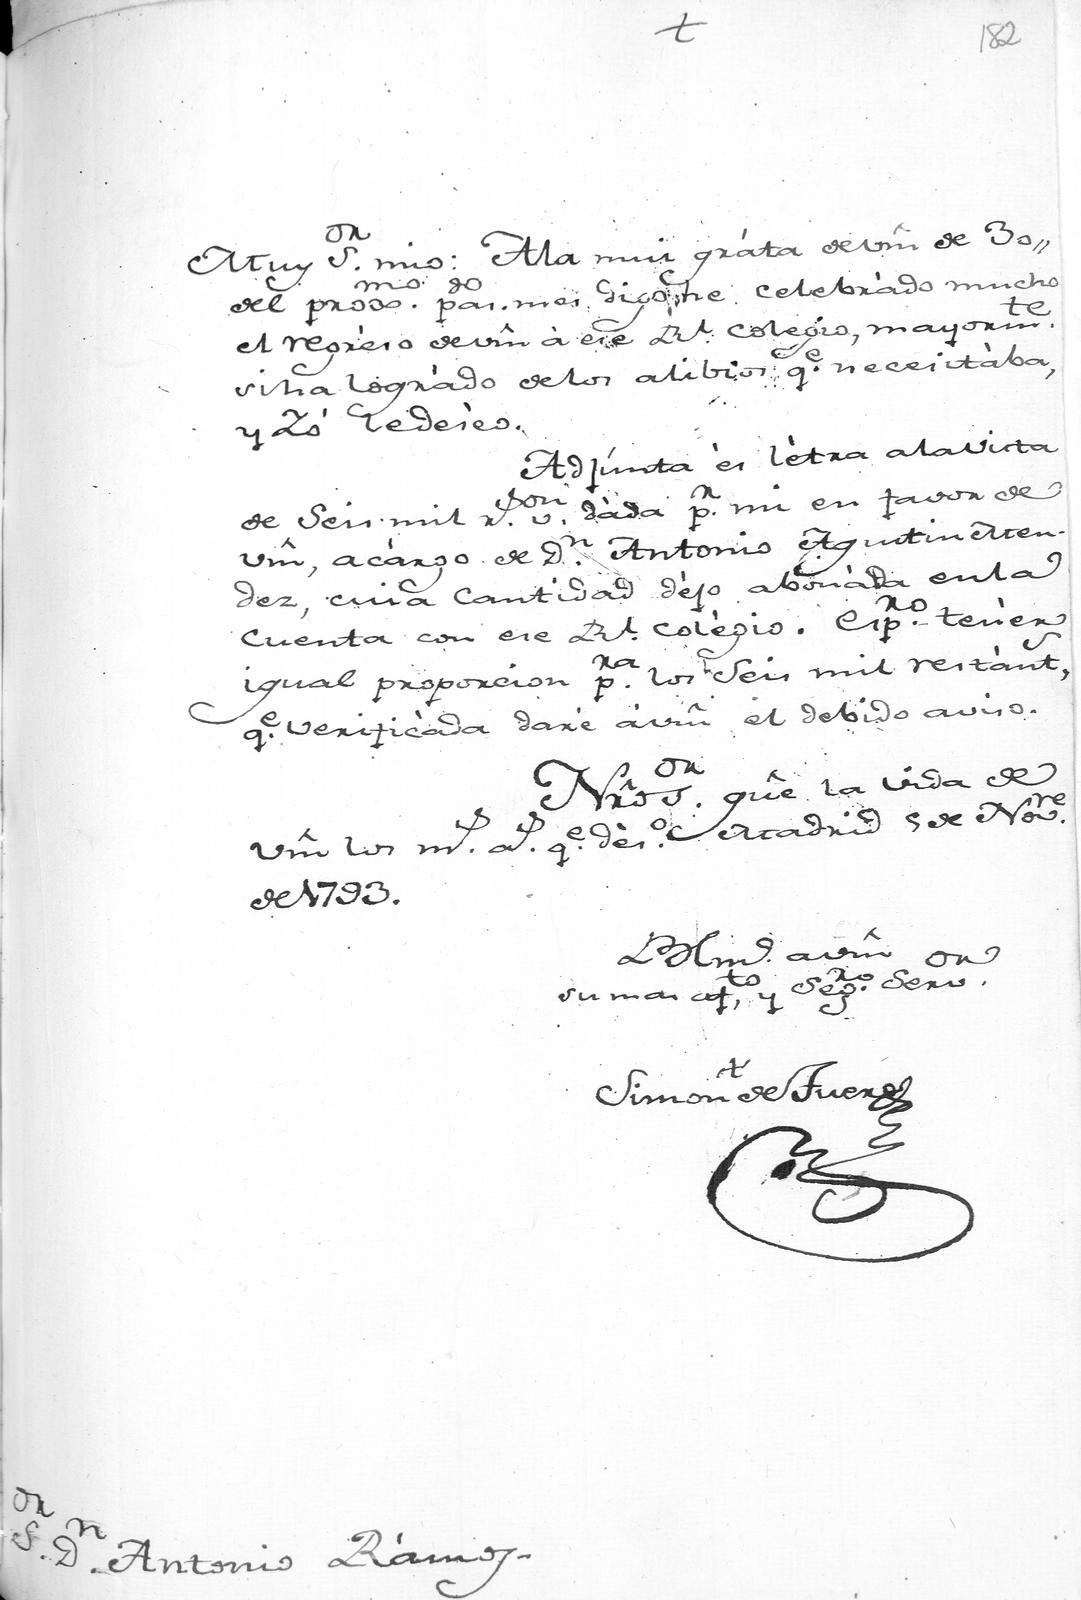 + 182
Muy S.or mio: A la mui gráta de vm̂ de 30,,
del proxo.mo pas.do mes digo, he celebrádo mucho
el regréso de vm̂ à ese Rl. Colegio, mayorm.te
si ha lográdo de los alibios q.e necesitába,
y Yó le deséo.
Adjúnta és létra a la vista
de Seis mil r.s v.on dáda p.r mi en favor de
vm̂, a cárgo de D.n Antonio Agustin Men-
dez, cuia Cantidad déjo abonáda en la
Cuenta con ese Rl. Colégio. Esp.ro tenér
igual proporcion p.ra los Seis mil restánt.s,
q.e verificáda daré à vm̂ el debido aviso.
Nrô S.or gûe la vida de
vm̂ los m.s a.s q.e dés.o Madrid 5 de Nov.re
de 1793.
B Lm.o a vm̂
su mas af.to, y Seg.ro Serv.or
Simon de Fuer
S.or D.n Antonio Rámos-